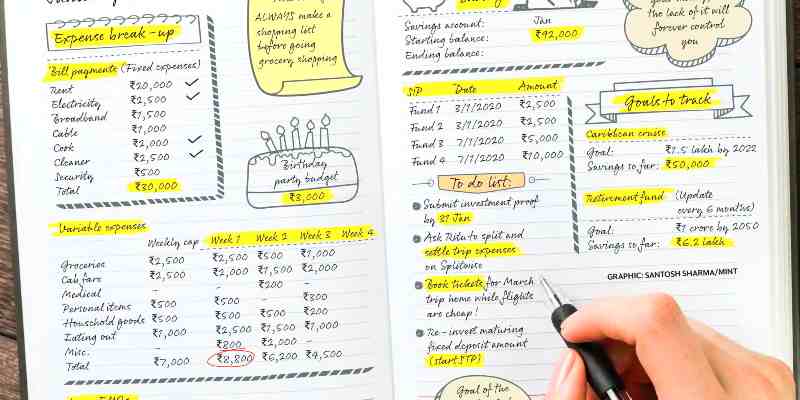 Expense break-up
Bill payments (Fixed expenses)
Rent ₹20,000
Electricity ₹2,500
Broadband ₹1,500
Cable ₹1,000
Cook ₹2,000
Cleaner ₹2,500
Security ₹500
Total ₹30,000
ALWAYS make a
shopping list
before going
grocery shopping
Birthday
party budget
₹3,000
Variable expenses
Weekly cap Week 1 Week 2 Week 3 Week 4
Groceries ₹2,500 ₹2,500 ₹500 ₹1,000
Cab fare ₹2,500 ₹2,000 ₹1,500 ₹2,000
Medical - - ₹200 -
Personal items ₹500 ₹500 - ₹300
Household goods ₹500 ₹500 ₹500 ₹200
Eating out ₹1,000 ₹2,500 ₹1,500 ₹1,000
Misc. - ₹800 ₹2,000 -
Total ₹7,000 ₹8,800 ₹6,200 ₹4,500
Jan
Savings account:
Starting balance: ₹92,000
Ending balance:
the lack of it will
forever control
you
SIP Date Amount
Fund 1 3/1/2020 ₹2,500
Fund 2 3/1/2020 ₹2,500
Fund 3 7/1/2020 ₹5,000
Fund 4 7/1/2020 ₹10,000
To do list:
Submit investment proof
by 31 Jan
Ask Ritu to split and
settle trip expenses
on Splitwise
Book tickets for March
trip home while flights
are cheap!
Re-invert maturing
fixed deposit amount
(start STP)
Goal of the
Goals to track
Caribbean cruise
Goal: ₹1.5 lakh by 2022
Savings so far: ₹50,000
Retirement fund (Update
every 6 months)
Goal: ₹1 crore by 2050
Savings so far: ₹6.2 lakh
GRAPHIC: SANTOSH SHARMA/MINT